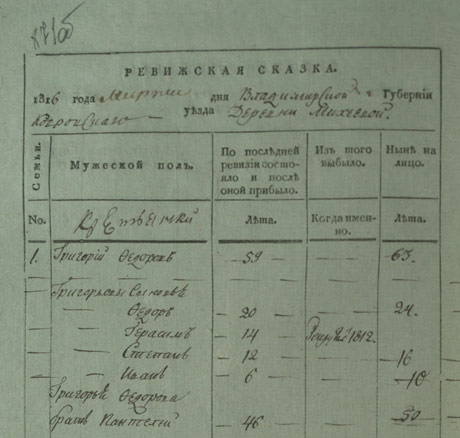 871 об
РЕВИЖСКАЯ СКАЗКА.
1816 года Марта дня Владимирской Губерніи
уѣзда Деревни
Семьи. Мужеской полъ. По послѣдней ревизіи состояло и послѣ оной прибыло. Изъ того выбыло. Нынѣ на лицо.
No. Крестьяне Лѣта. Когда именно. Лѣта.
1. Григорій Ѳедоровъ — 59 — — 63.
Григорьевы сыновья
Ѳедоръ — 20 — — 24.
Герасимъ — 14 — Рекрутъ 1812.
Степанъ — 12 — — 16
Иванъ — 6 — — 10
Григорья Ѳедорова
братъ Пантелей — 46 — — 50